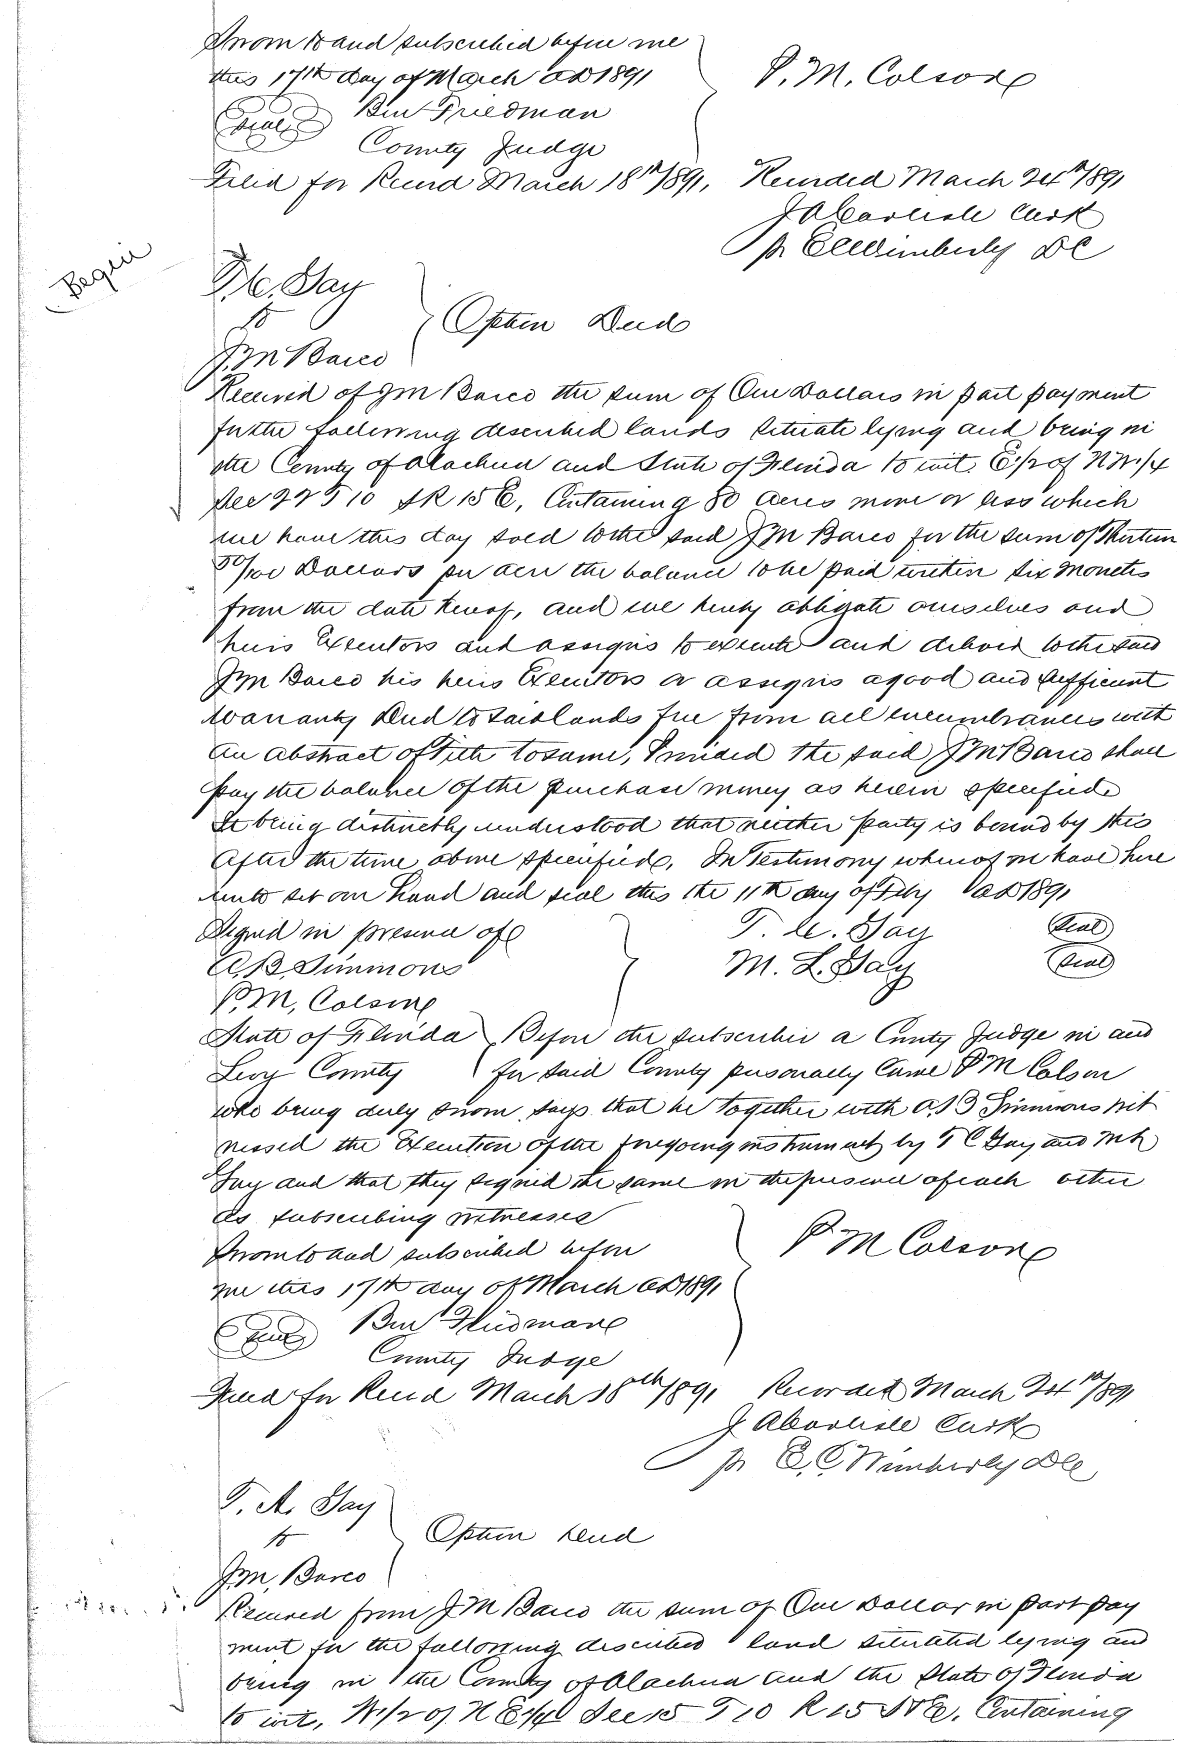 Sworn to and subscribed before me
this 17th day of March AD 1891
P. M. Colson
Ben Friedman
Seal
County Judge
Filed for Record March 18th/891, Recorded March 24th/891
J A Carlisle Clerk
pr E C Wimberly DC
Begin
T. C. Gay
to
Option Deed
J. M Barco
Received of J M Barco the sum of One Dollars in part payment
for the following described lands situate lying and being in
the County of Alachua and State of Florida to wit. E 1/2 of N W 1/4
Sec 27 T 10 S R 15 E, Containing 80 acres more or less which
we have this day sold to the said J M Barco for the sum of Thirteen
50/100 Dollars per acre the balance to be paid within six months
from the date hereof, and we hereby obligate ourselves and
heirs Executors and assigns to execute and deliver to the said
J M Barco his heirs Executors or assigns a good and sufficient
Warranty Deed to said lands free from all encumbrances with
an abstract of Title to same, Provided the said J M Barco shall
pay the balance of the purchase money as herein specified
It being distinctly understood that neither party is bound by this
After the time above specified. In Testimony whereof we have here
unto set our hand and seal this the 11th day of Feby AD 1891
Signed in presence of
T. C. Gay Seal
A. B Simmons
M. L. Gay Seal
P. M, Colson
State of Florida Before the subscriber a County Judge in and
Levy County for said County personally came P M Colson
who being duly sworn says that he together with A B Simmons wit
nessed the Execution of the foregoing instrument by T C Gay and M L
Gay and that they signed the same in the presence of each other
as subscribing witnesses
Sworn to and subscribed before
P M Colson
me this 17th day of March AD 1891
Ben Friedman
Seal
County Judge
Filed for Record March 18th/891 Recorded March 24th/891
J A Carlisle Clerk
pr E. C Wimberly DC
T. A. Gay
to
Option Deed
J. M, Barco
Received from J M Barco the sum of One Dollar in part pay
ment for the following described land situated lying and
being in the County of Alachua and the State of Florida
to wit, W 1/2 of N E 1/4 Sec 15 T 10 R 15 E. Containing